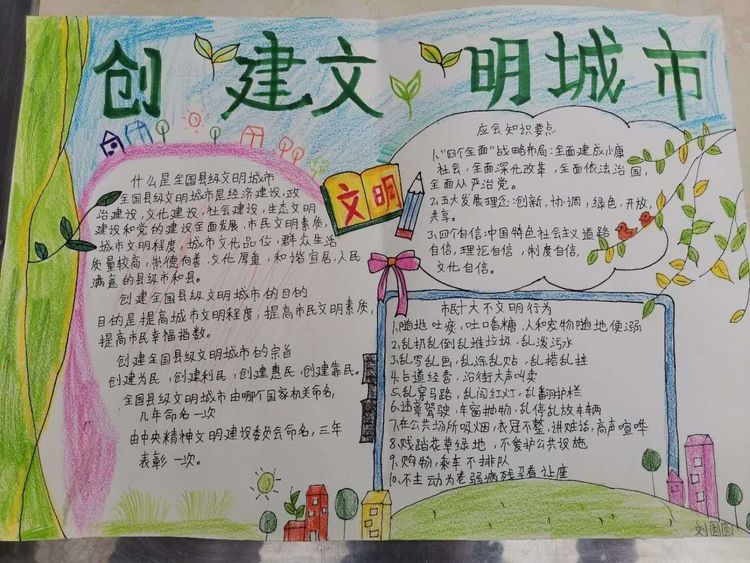 创建文明城市
什么是全国县级文明城市
全国县级文明城市是经济建设,政
治建设,文化建设,社会建设,生态文明
建设和党的建设全面发展,市民文明素质,
城市文明程度,城市文化品位,群众生活
质量较高,崇德向善,文化厚重,和谐宜居,人民
满意的县级市和县。
创建全国县级文明城市的目的
目的是提高城市文明程度,提高市民文明素质,
提高市民幸福指数。
创建全国县级文明城市的宗旨
创建为民,创建利民,创建惠民,创建靠民。
全国县级文明城市由哪个国家机关命名,
几年命名一次
由中央精神文明建设委员会命名,三年
表彰一次。
文明
应会知识要点
1、"四个全面"战略布局:全面建成小康
社会,全面深化改革,全面依法治国,
全面从严治党。
2、五大发展理念:创新,协调,绿色,开放,
共享。
3、四个自信:中国特色社会主义道路
自信,理论自信,制度自信,
文化自信。
市民十大不文明行为
1、随地吐痰,吐口香糖,人和宠物随地便溺
2、乱扔乱倒乱堆垃圾,乱泼污水
3、乱写乱画,乱涂乱贴,乱搭乱挂
4、占道经营,沿街大声叫卖
5、乱穿马路,乱闯红灯,乱翻护栏
6、违章驾驶,车窗抛物,乱停乱放车辆
7、在公共场所吸烟,衣冠不整,讲脏话,高声喧哗
8、践踏花草绿地,不爱护公共设施
9、购物,乘车不排队
10、不主动为老弱病残孕者让座
刘圆圆